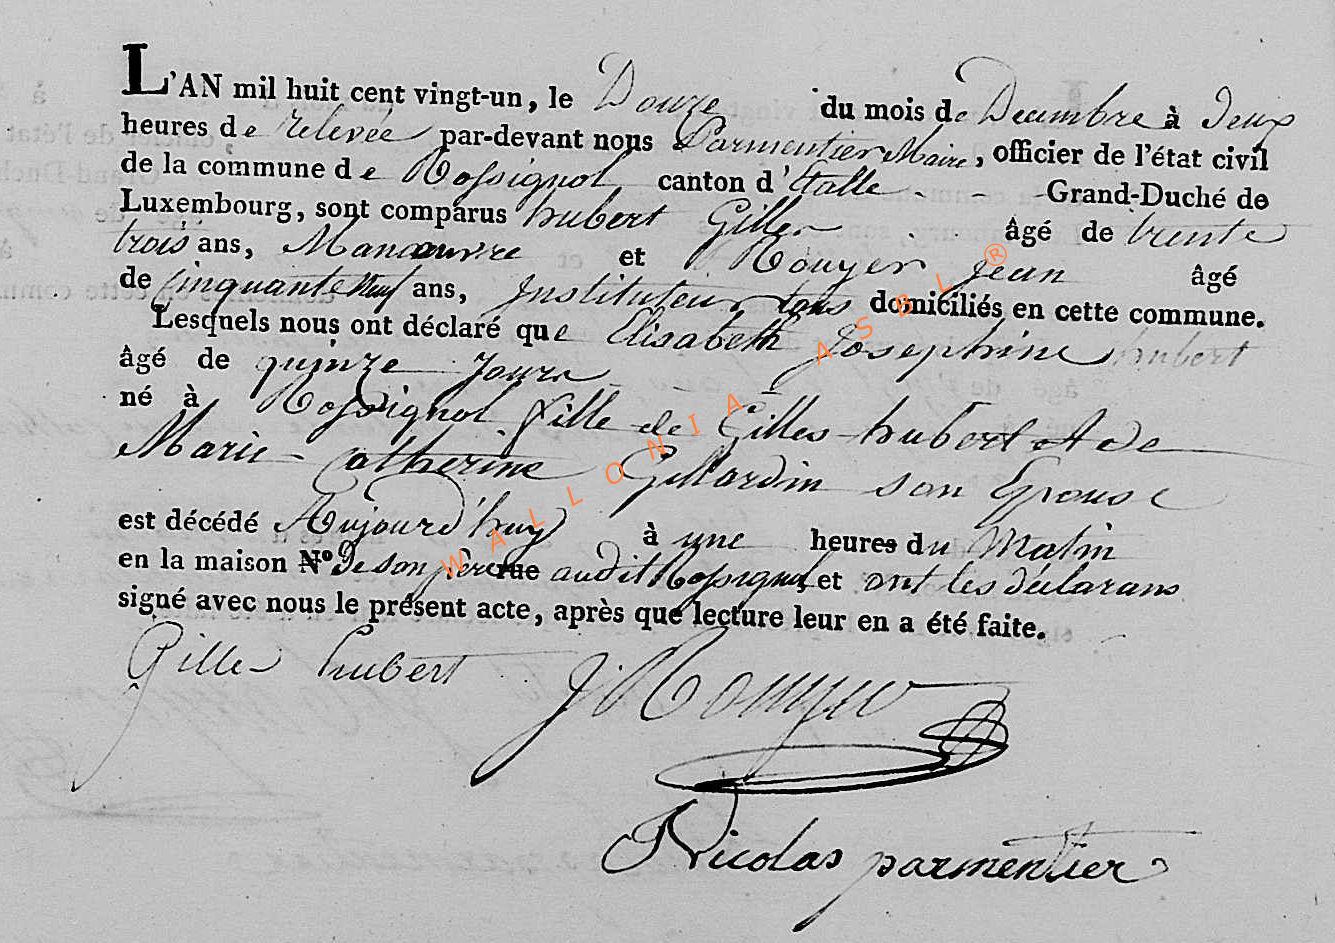 L'AN mil huit cent vingt-un, le Douze du mois de Decembre à deux
heures de relevée par-devant nous Parmentier Maire, officier de l'état civil
de la commune de Rossignol canton d'Etalle - - Grand-Duché de
Luxembourg, sont comparus hubert Gilles âgé de trente
trois ans, Manœuvre et Rouyer Jean âgé
de cinquante Neuf ans, Instituteur tous domiciliés en cette commune.
Lesquels nous ont déclaré que Elisabeth Josephine hubert
âgé de quinze Jours
né à Rossignol fille de Gilles hubert & de
Marie Catherine Gillardin son Epouse
est décédé Aujourd'huy à une heures du Matin
en la maison N° de son père rue audit Rossignol, et ont les déclarans
signé avec nous le présent acte, après que lecture leur en a été faite.
Gilles hubert J Rouyer
Nicolas parmentier
WALLONIA ASBL ®